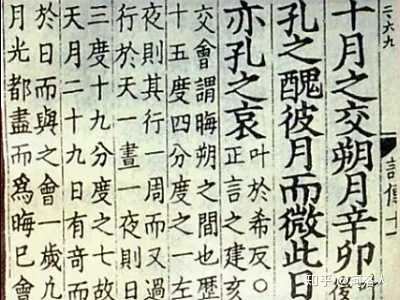 二六九
傳十
十月之交朔月辛卯
孔之醜彼月而微此日
亦孔之哀叶於希反○
正言之建亥
交會謂晦朔之間也歷
十五度四分度之一左
夜則其行一周而又過
行於天一晝一夜則日
三度十九分度之七故
天月二十九日有奇而
於日而與之會一歲凡
月光都盡而爲晦已會
知乎